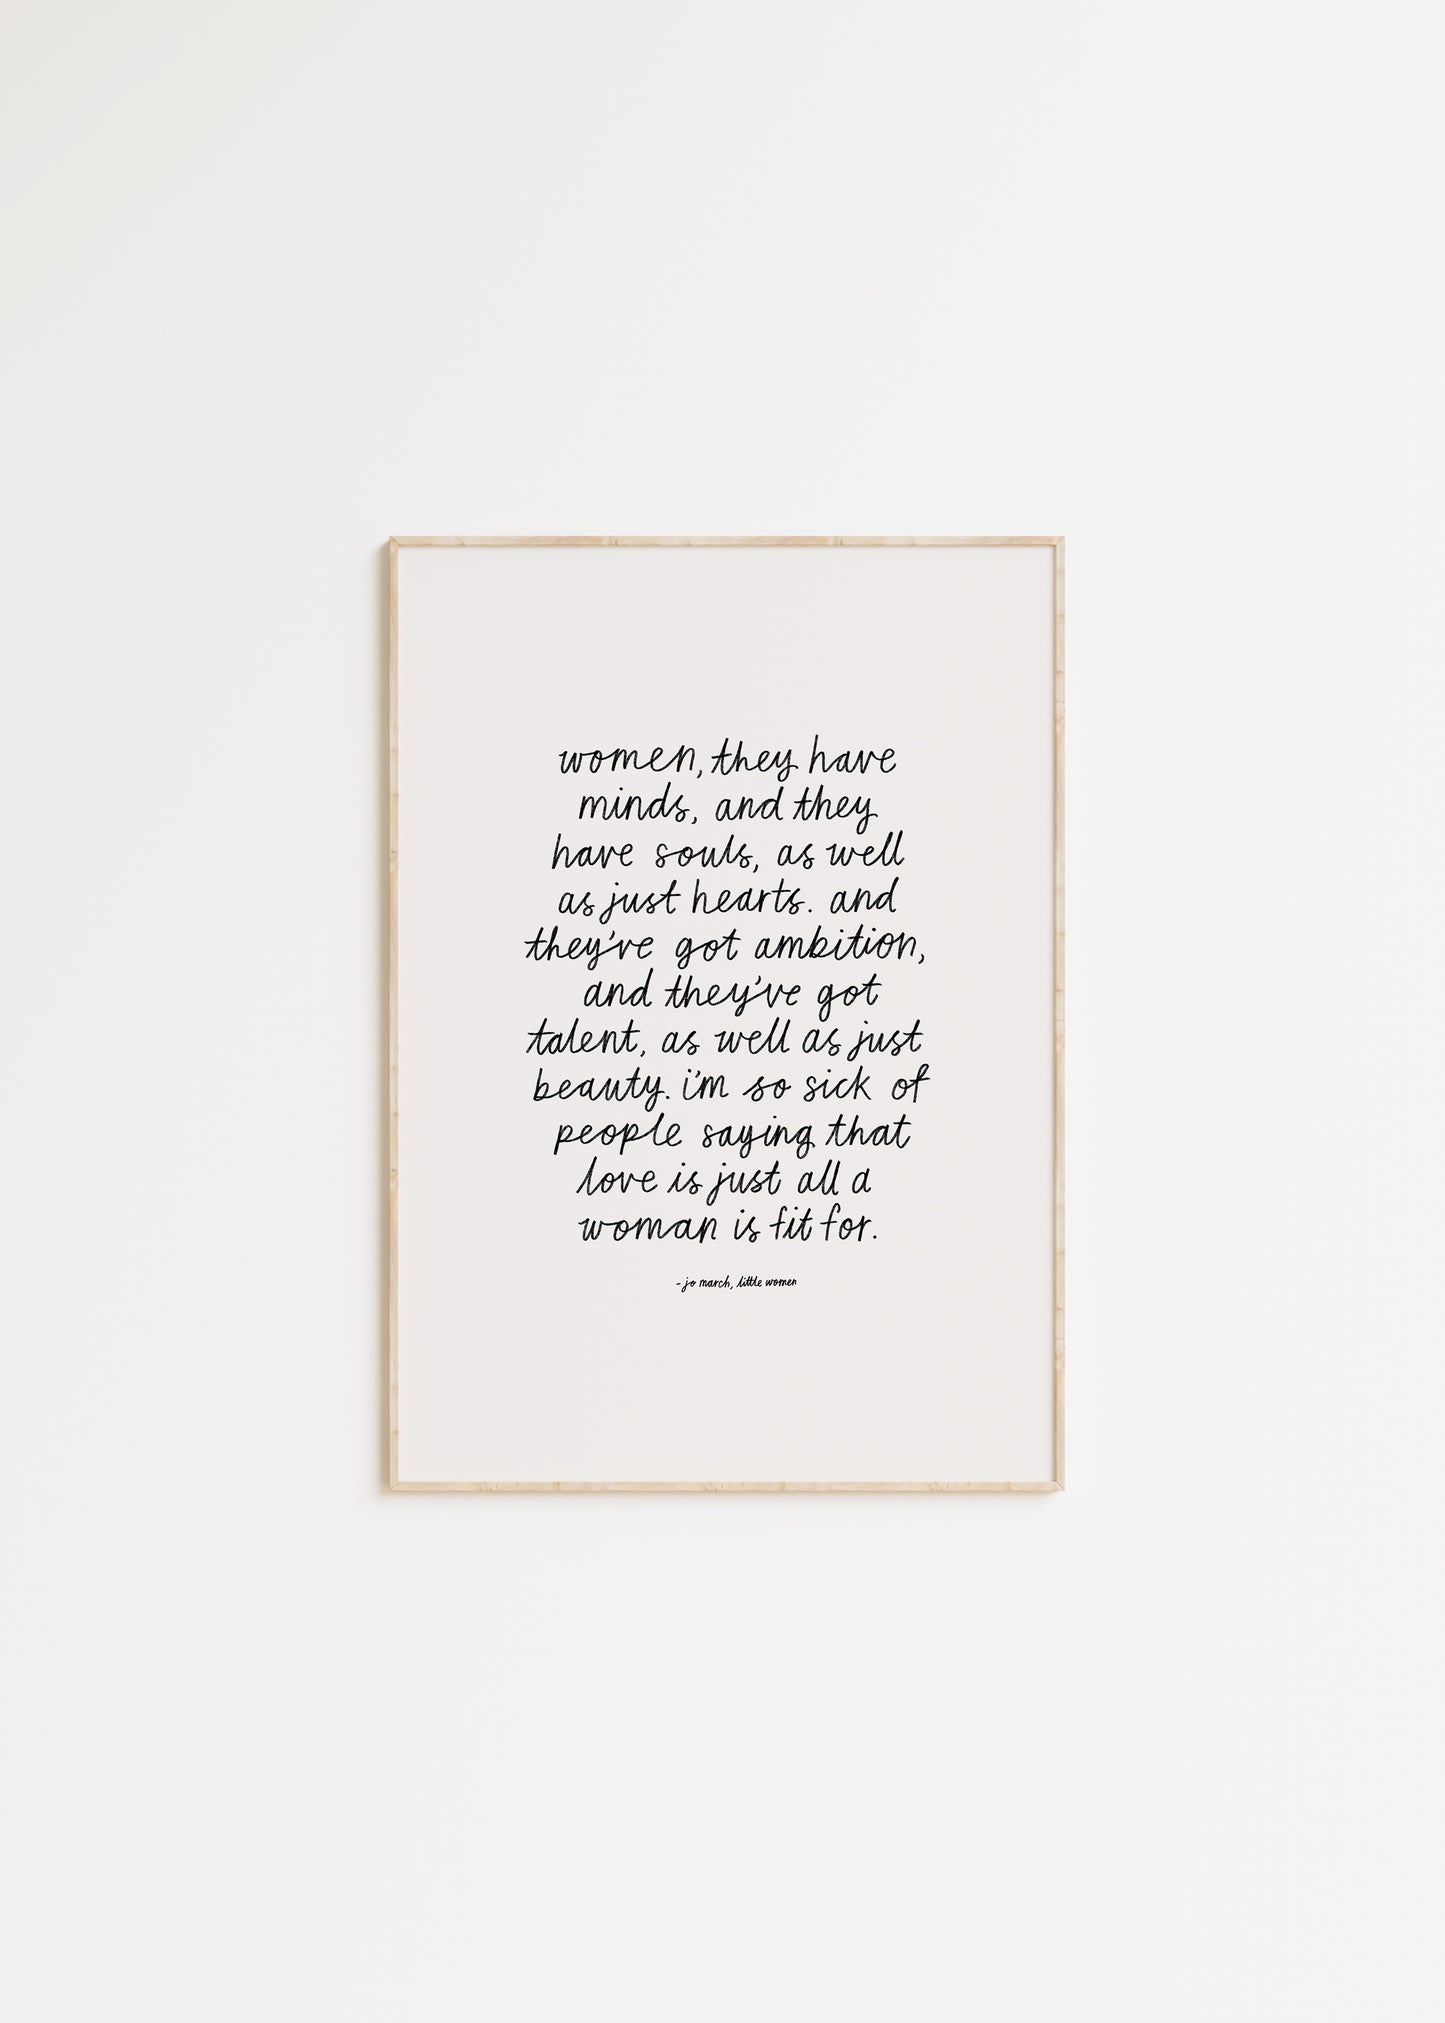 women, they have
minds, and they
have souls, as well
as just hearts. and
they've got ambition,
and they've got
talent, as well as just
beauty. i'm so sick of
people saying that
love is just all a
woman is fit for.
- jo march, little women